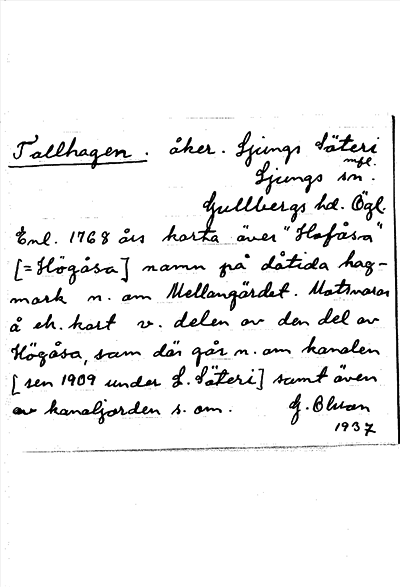 Tallhagen. åker. Ljungs Säteri
mfl.
Ljungs sn.
Gullbergs hd. Ögl.
Enl. 1768 års karta över "Hofåsa"
[=Högåsa] namn på dåtida hag-
mark n. om Mellangärdet. Motsvaras
å ek. kart v. delen av den del av
Högåsa, som där går n. om kanalen
[sen 1909 under L. Säteri] samt även
av kanaljorden s. om. G.
1937